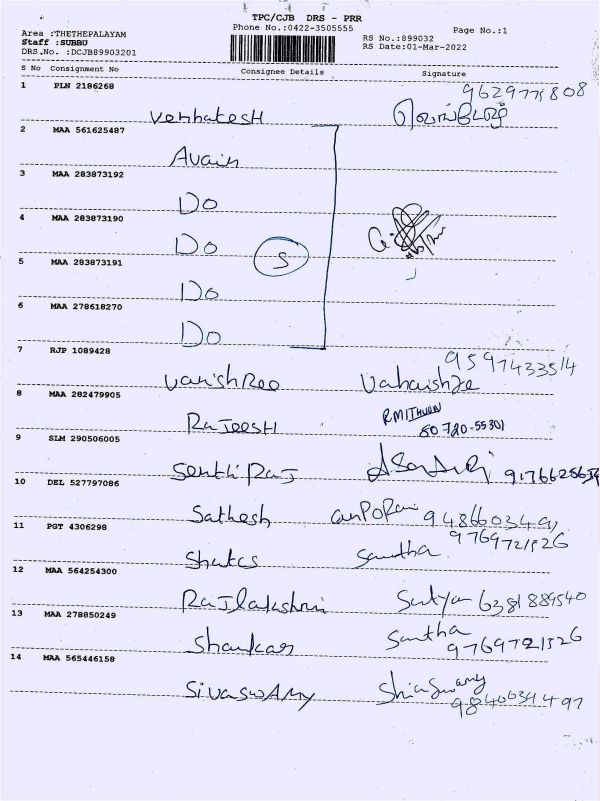 TPC/CJB DRS - PRR
Phone No.:0422-3505555
Page No.:1
Area :THETHEPALAYAM
Staff :SUBBU
DRS.No. :DCJB89903201
RS No.:899032
RS Date:01-Mar-2022
S No Consignment No Consignee Details Signature
1 PLN 2186268
9629775808
Venkatesh
2 MAA 561625487
3 MAA 283873192
Do
4 MAA 283873190
Do
S
5 MAA 283873191
Do
6 MAA 278618270
Do
7 RJP 1089428
9597433514
8 MAA 282479905
RMITHUN
Rajeesh
80720-55301
9 SLM 290506005
Senthil Raj
10 DEL 527797086
Sathesh
11 PGT 4306298
9769721526
Santha
12 MAA 564254300
Rajlakshmi Sutya 6381889540
13 MAA 278850249
Santha
Shankar 9769721526
14 MAA 565446158
Sivaswamy Shivaswamy